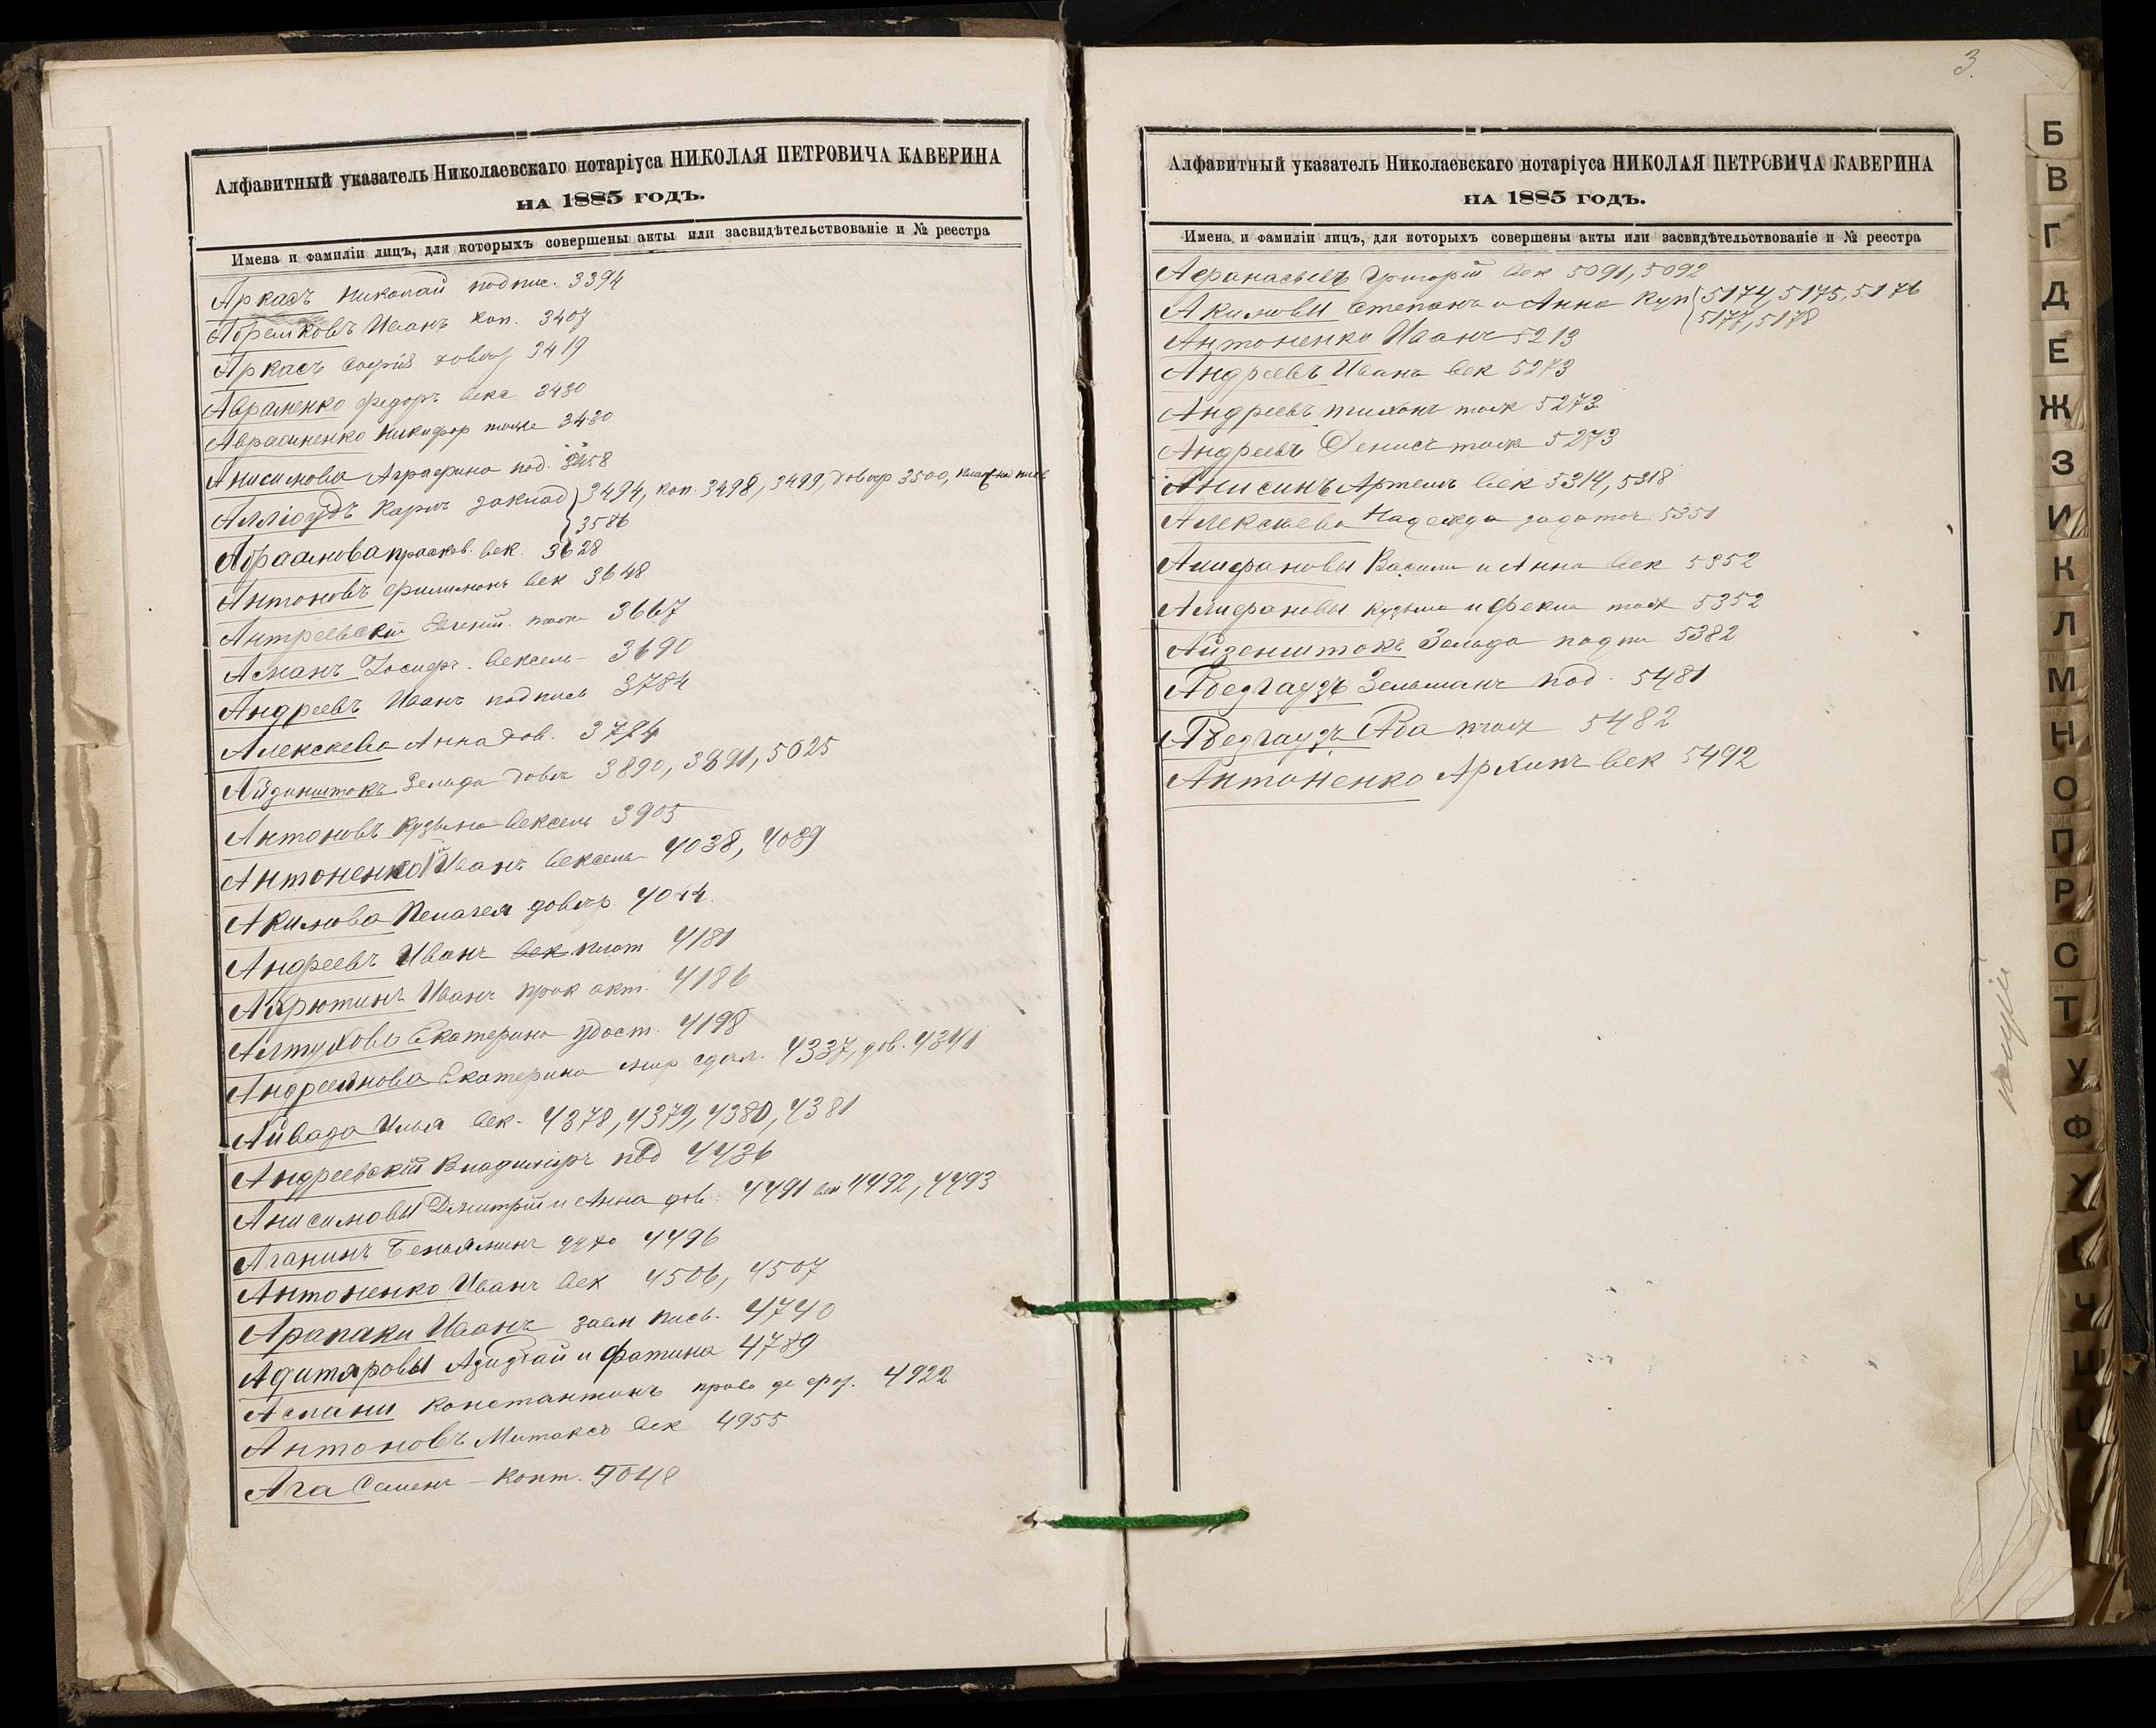 Алфавитный указатель Николаевскаго нотаріуса НИКОЛАЯ ПЕТРОВИЧА КАВЕРИНА
НА 1885 ГОДЪ.
Имена и фамиліи лицъ, для которыхъ совершены акты или засвидѣтельствованіе и № реестра
Аркасъ Николай подпис. 3394
Абрамковъ Иванъ коп. 3407
Аркасъ Софія 3419
Авраменко Федоръ века 3430
Авраменко Никифор тоже 3430
Анисимова Аграфина под. 3458
Алліаудъ Карлъ заклад 3494, коп. 3498, 3499, довѣр 3500,
3586
Абрамова прасков. век. 3628
Антоновъ Филимонъ век 3648
Антреевскій Евгеній. 3667
Асманъ Іосифъ. вексель 3690
Андреевъ Иванъ подпись 3784
Алексѣева Анна дов. 3784
Айзенштокъ Зельда довѣр 3890, 3891, 5025
Антоновъ Кузьма вексель 3905
Антоненко Иванъ вексель 4038, 4039
Акимова Пелагея довѣр. 4044.
Андреевъ Иванъ век плат 4181
Иванъ прок акт. 4186
Алтухова Екатерина удост. 4198
Андреянова Екатерина мир сдѣл. 4337, дов. 4341
Айвада Илья век. 4378, 4379, 4380, 4381
Андреевскій Владиміръ под 4436
Анисимовы Дмитрій и Анна дов. 4491 век 4492, 4493
Аганинъ Беньяминъ 4496
Антоненко Иванъ век 4506, 4507
Арапаки Иванъ заем пись. 4740
Адитяровы и Фатима 4789
Аслани Константинъ 4922
Антоновъ век 4955
Ага Семенъ – Конт. 5048
3.
Алфавитный указатель Николаевскаго нотаріуса НИКОЛАЯ ПЕТРОВИЧА КАВЕРИНА
НА 1885 ГОДЪ.
Имена и фамиліи лицъ, для которыхъ совершены акты или засвидѣтельствованіе и № реестра
Афанасьевъ Григорій век 5091, 5092
Акимовы Степанъ и Анна куп 5174, 5175, 5176
5177, 5178
Антоненко Иванъ 5213
Андреевъ Иванъ век 5273
Андреевъ Тихонъ тож 5273
Андреевъ Денисъ тож 5273
Анисинъ Артемъ век 5314, 5318
Алексѣева Надежда задаточ. 5351
Алифановы Василій и Анна век 5352
Алифановы Кузьма и Фекла тож 5352
Айзенштокъ Зельда подпи 5382
Абедгаузъ Зельманъ под. 5481
Абедгаузъ Аба тож 5482
Антоненко Архипъ век 5492
Б
В
Г
Д
Е
Ж
З
И
К
Л
М
Н
О
П
Р
С
Т
У
Ф
Х
Ч